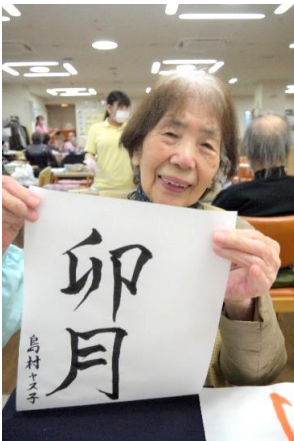 卯月
島村ヤス子